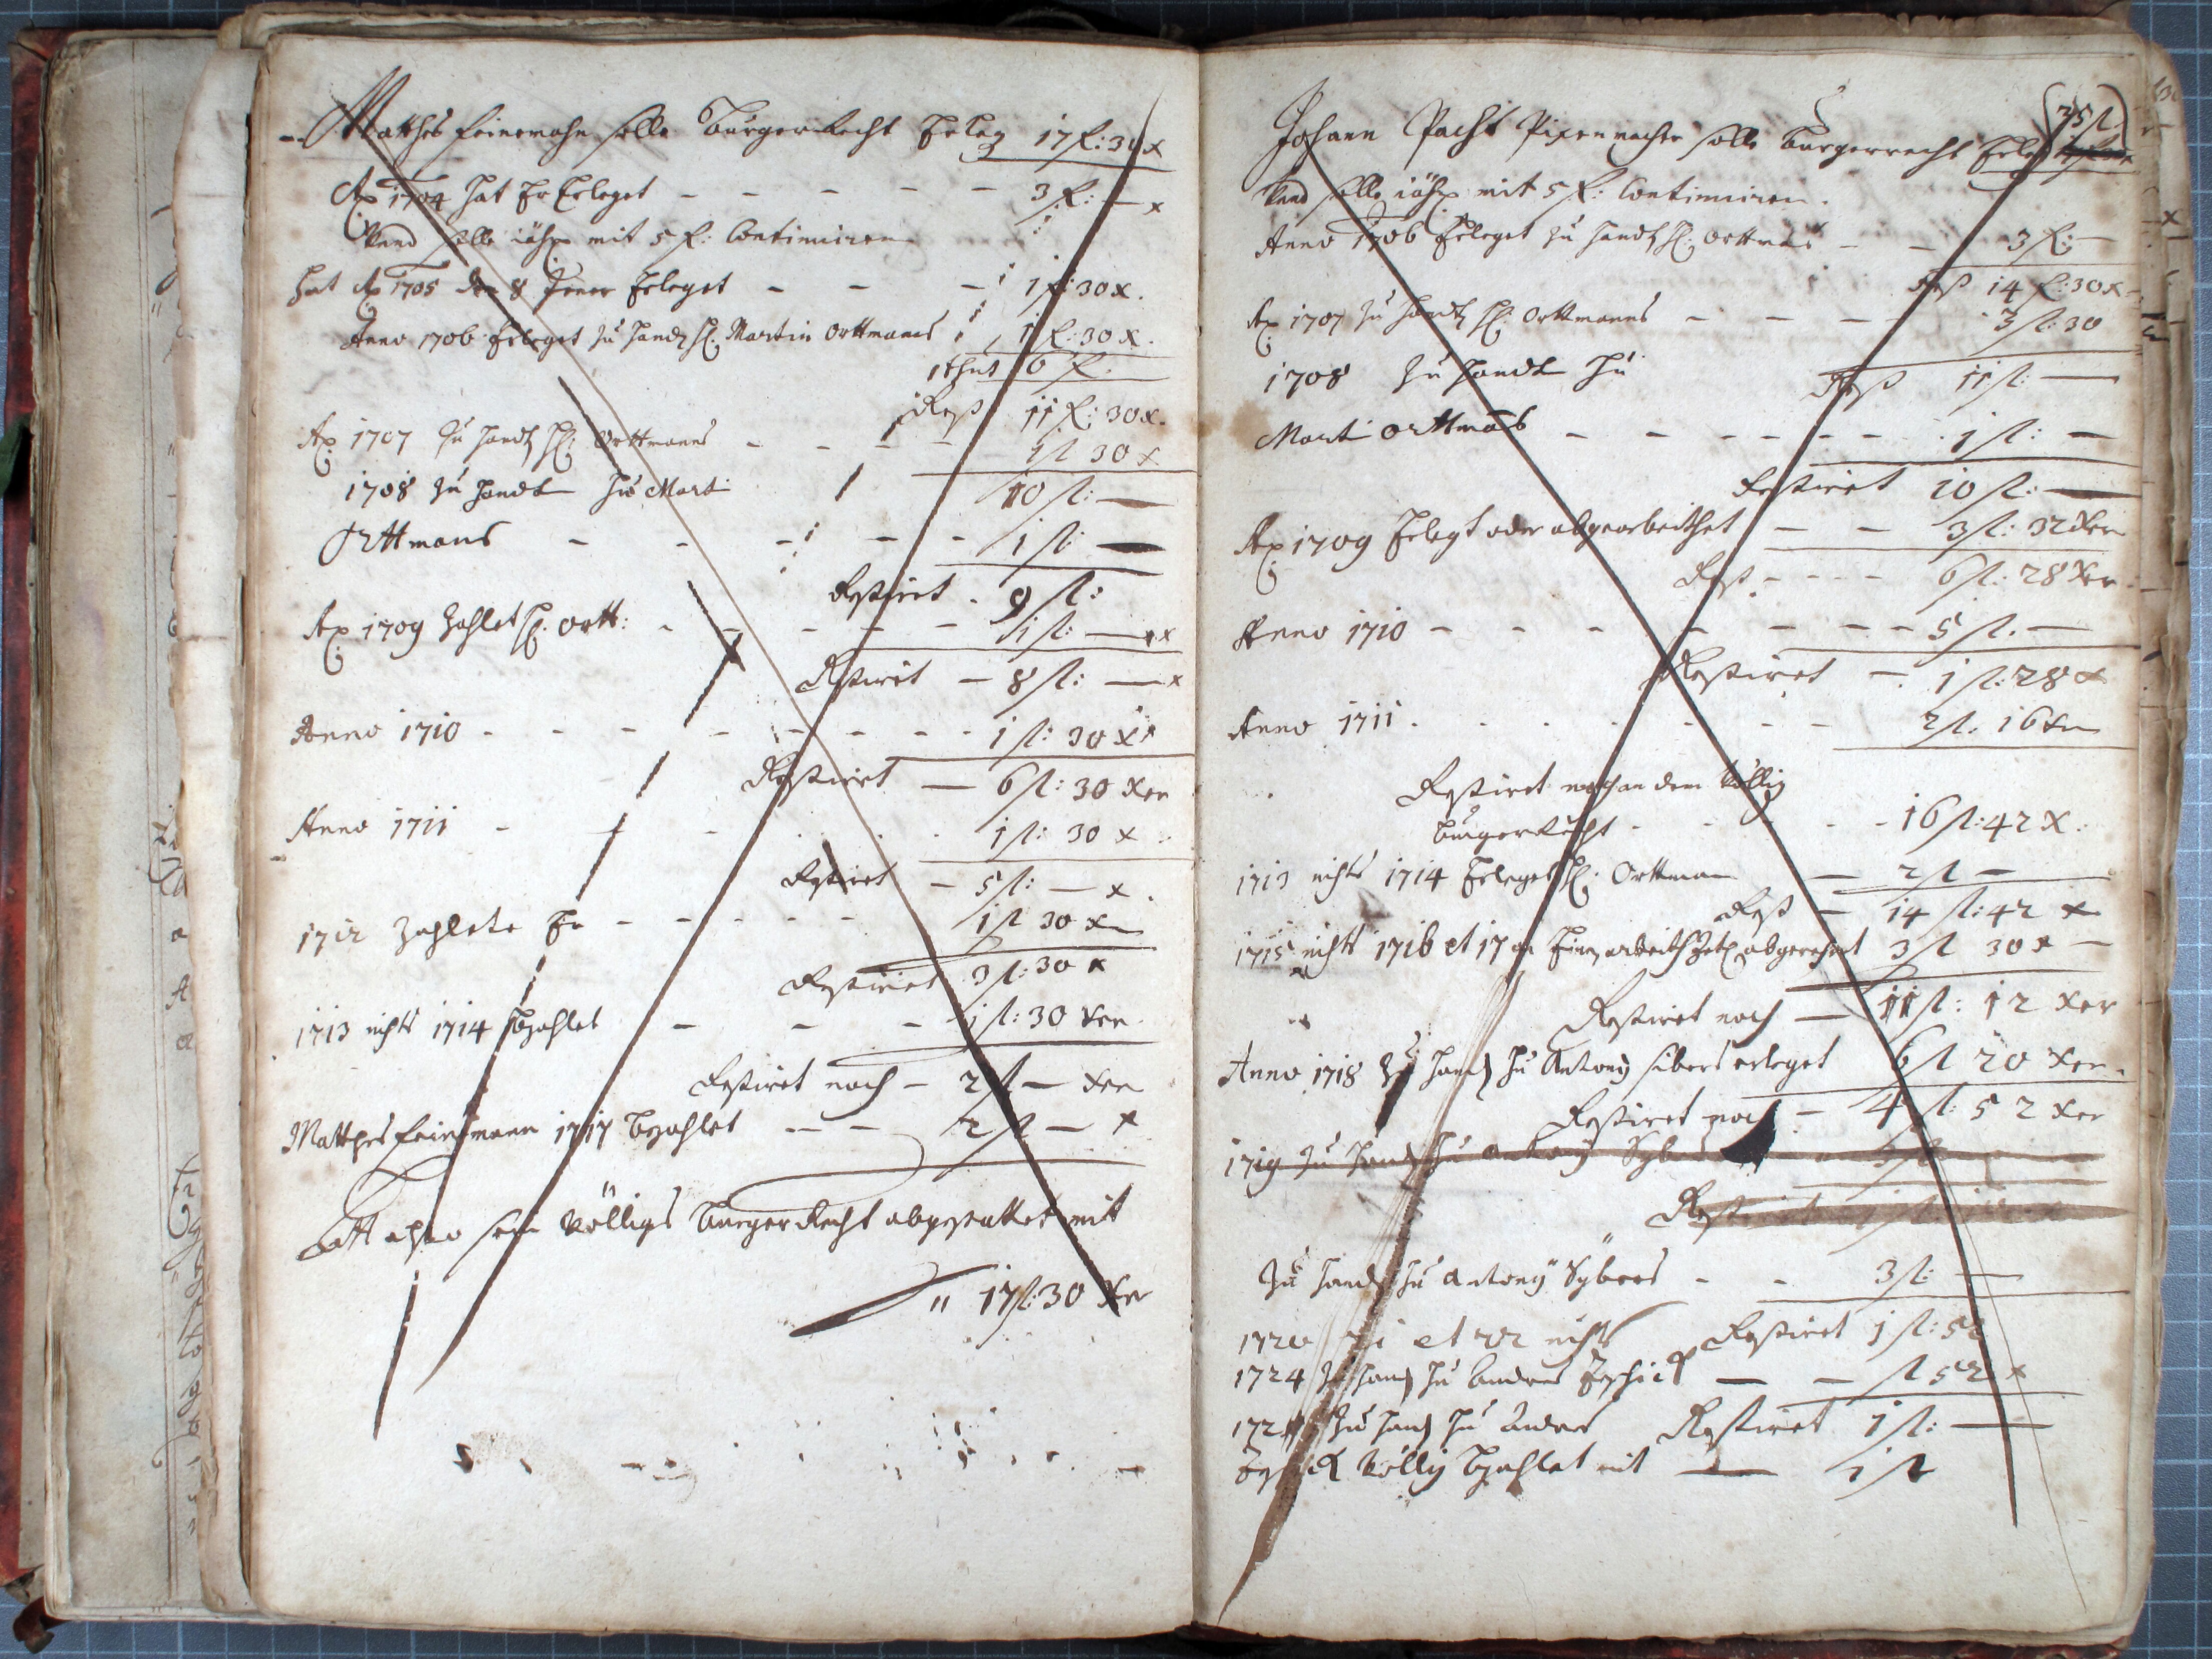 Matthes Feinemahn solle Burger Recht Erleg 17 f: 30 x
Ao 1704 hat Er Erleget - - - - - 3 f: — x
Vnnd solle iähr mit 5 f: Continuiren
hat Ao 1705 den 8 Jener Erleget - - - 1 f: 30 x.
Anno 1706 Erleget zu handt H: Martin Orttmans 1 f: 30 x.
thut 6 f.
Rest 11 f: 30 x.
Ao 1707 zu handt H: Orttmans - - - - 1 fl 30 x
1708 zu handt Hr Marti 10 fl: —
Orttmans - - - - - - 1 fl: —
Restiret - 9 fl:
Ao 1709 zahlet H: Ortt: - - - - - 1 fl: — x
Restiret — 8 fl: — x
Anno 1710 - - - - - - - - 1 fl: 30 x
Restiret — 6 fl: 30 xer
Anno 1711 - - - - - - 1 fl: 30 x
Restiret — 5 fl: — x
1712 zahlete Er - - - - - 1 fl 30 x
Restiret 3 fl: 30 x
1713 nichts 1714 bezahlet - - - 1 fl: 30 xer
Restiret noch — 2 fl — xer
Matthes Feinemann 1717 bezahlet - - - 2 fl — x
hatt also sein völligs burger Recht abgestattet mit
" 17 fl: 30 xer
Johann Pacht Pixenmacher solle burgerrecht Erleg (35 fl.)
Vnnd solle iähr mit 5 f: Continuiren.
Anno 1706 Erleget zu handt H: Orttmans - - 3 f: —
Rest 14 f: 30 x
Ao 1707 zu handt H: Orttmanns - - - - 3 fl: 30
1708 zu handt Hr Rest 11 fl: —
Marti Orttmans - - - - - - - 1 fl: —
Restiret 10 fl: —
Ao 1709 Erlegt oder abgearbeithet - - 3 fl: 32 xer
Rest - - - - 6 fl: 28 xer
Anno 1710 - - - - - - - - 5 fl. —
Restiret - 1 fl: 28 x
Anno 1711 . - - - - - - 2 fl. 16 xer
Restiret noch an dem völlig
burgerRecht - - - - - 16 fl: 42 x.
1713 nichts 1714 Erleget H: Orttman — 2 fl —
Rest — 14 fl: 42 x
1715 nichts 1716 et 17 an arbeith abgerechnet 3 fl 30 x —
Restiret noch — 11 fl: 12 xer
Anno 1718 zu handt Hr Antony sibers erleget 6 fl 20 xer.
Restiret noch - 4 fl: 52 xer
1719 zu handt Hr Antony Syb
Rest
zu handt Hr Antony Sybers - - 3 fl: —
1720 21 et 22 nichts Restiret 1 fl: 52
1724 zu handt Hr Andres — — fl 52 x
zu handt Hr Andres Restiret 1 fl: —
völlig bezahlet mit — 1 fl